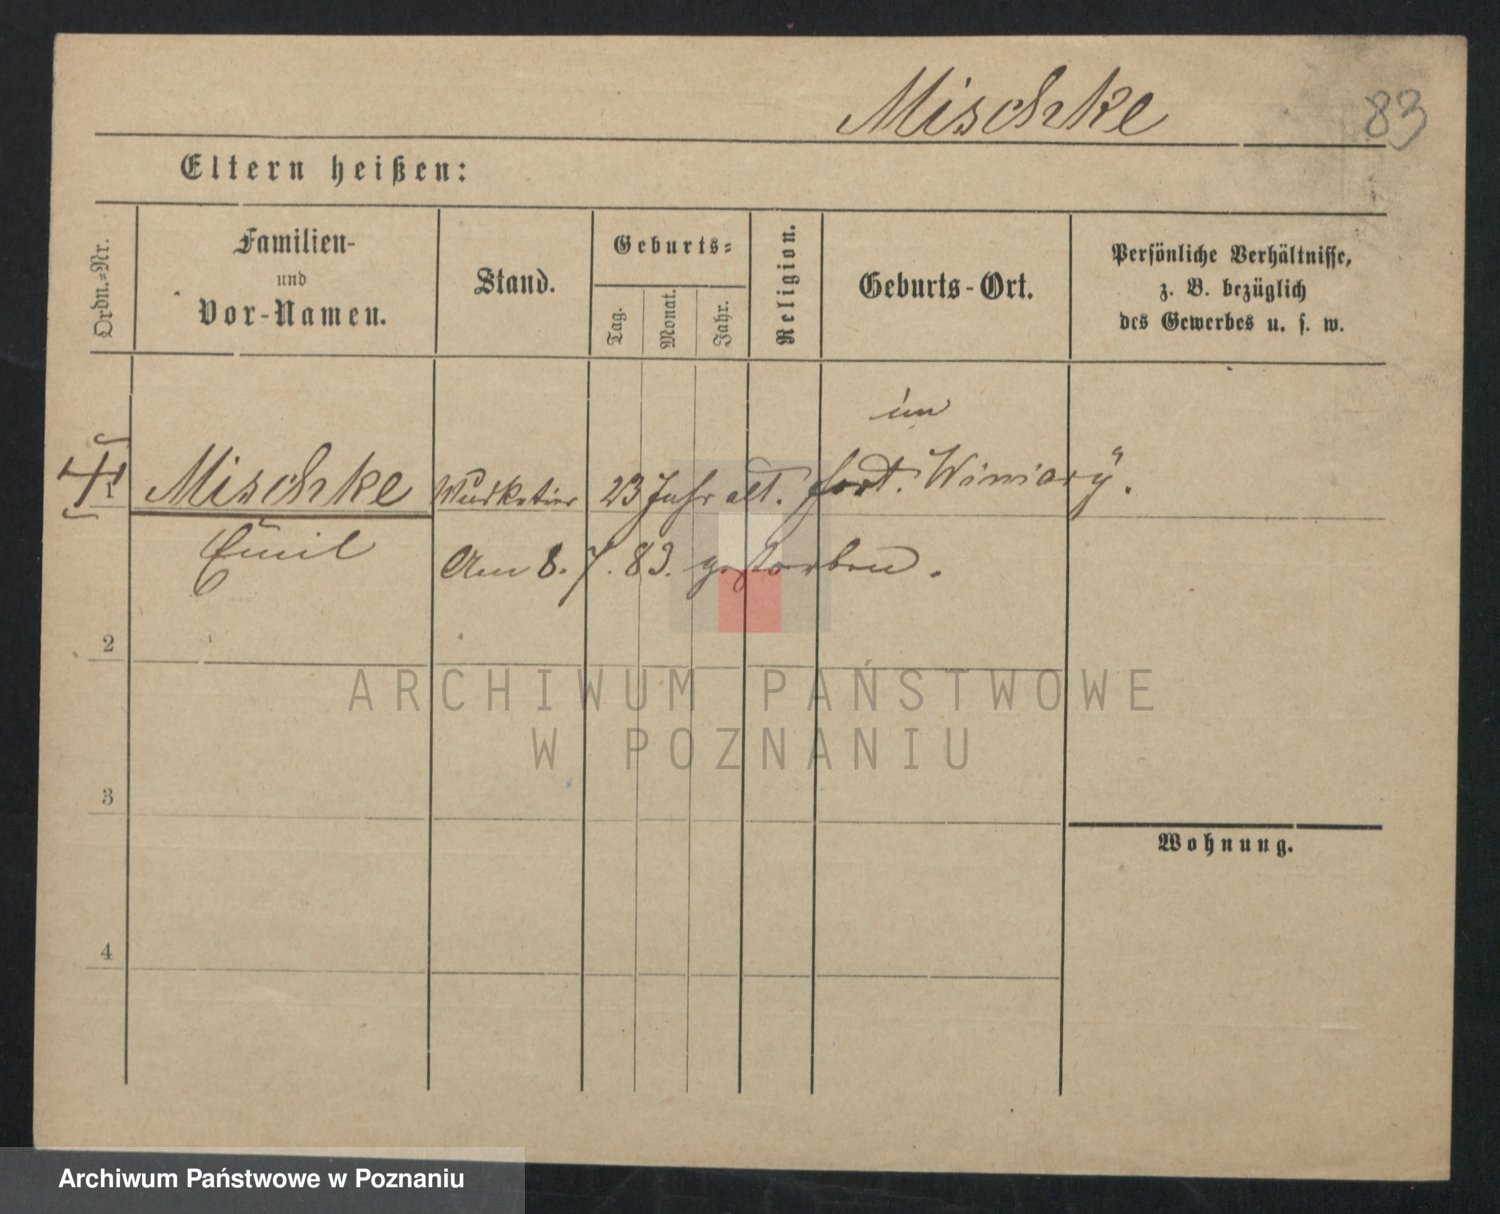 Mischke 83
Eltern heißen:
Ordn.-Nr.
Familien-
und
Vor-Namen.
Stand.
Geburts-
Tag.
Monat.
Jahr.
Religion.
Geburts-Ort.
Persönliche Verhältnisse,
z. B. bezüglich
des Gewerbes u. s. w.
im
1 Mischke Musketier 23 Jahr alt. fort. Winiary.
Emil Am 8. 7. 83. gestorben.
2
3
4
Wohnung.
ARCHIWUM PAŃSTWOWE
W POZNANIU
Archiwum Państwowe w Poznaniu